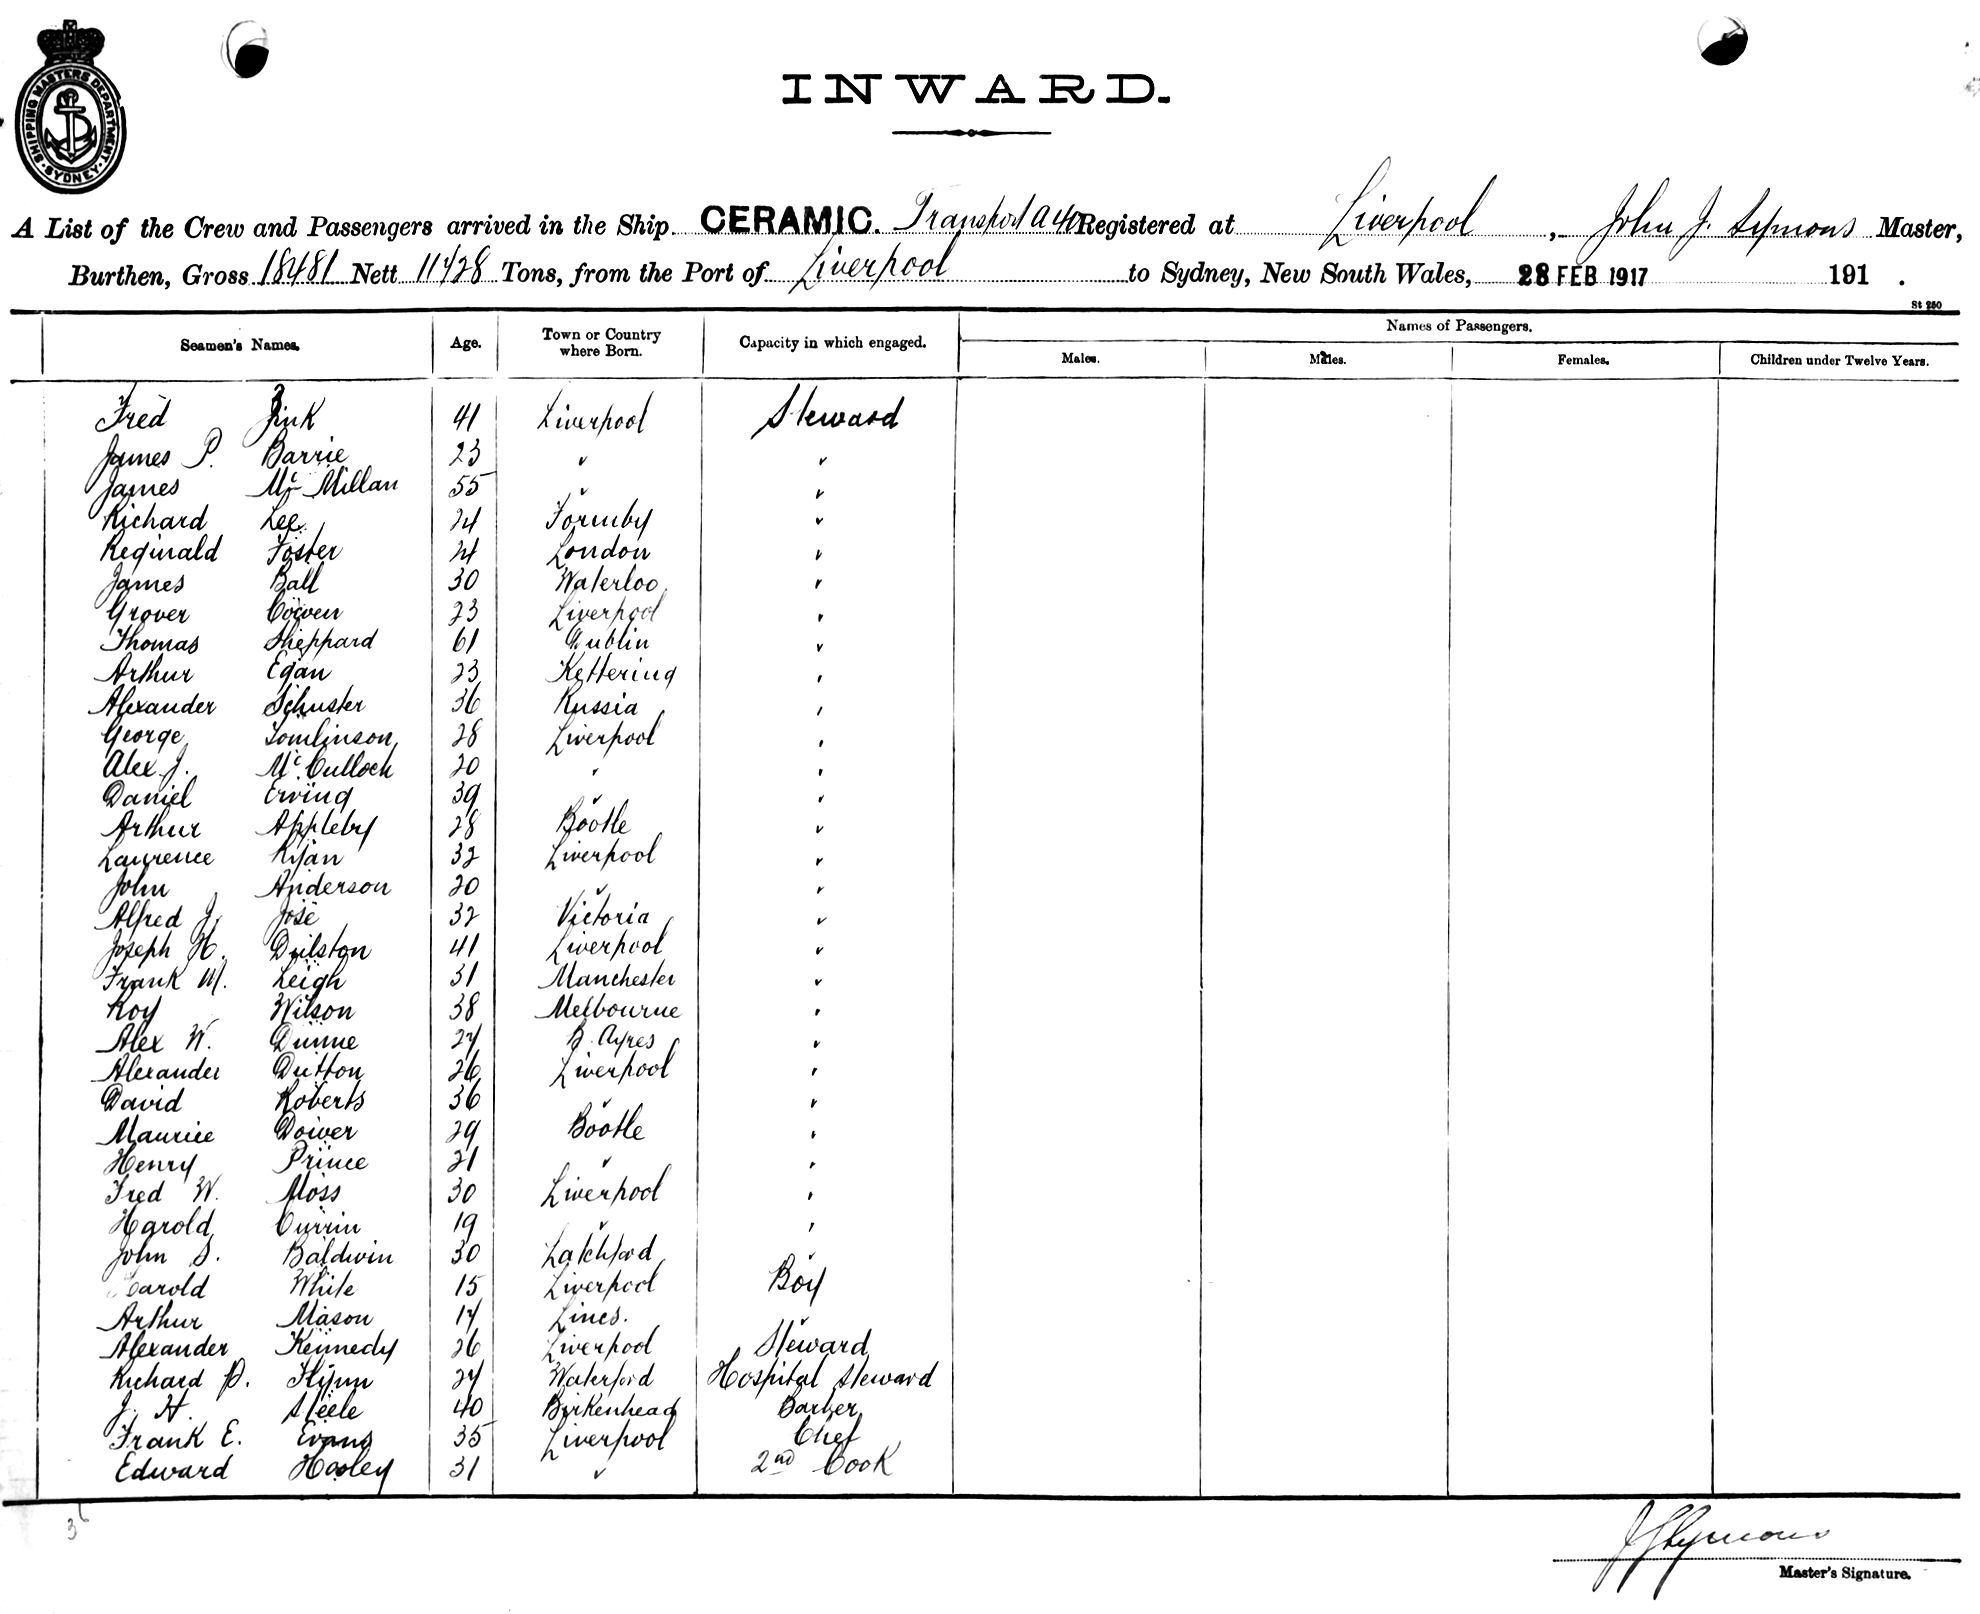 SHIPPING MASTERS DEPARTMENT
SYDNEY
INWARD.
A List of the Crew and Passengers arrived in the Ship CERAMIC. Transport A40 Registered at Liverpool, John J. Symons Master,
Burthen, Gross 18481 Nett 11428 Tons, from the Port of Liverpool to Sydney, New South Wales, 28 FEB 1917 191 .
St 250
Seamen's Names. Age. Town or Country where Born. Capacity in which engaged. Names of Passengers.
Males. Males. Females. Children under Twelve Years.
Fred Zink 41 Liverpool Steward
James P. Barrie 23 " "
James McMillan 55 " "
Richard Lee 24 Formby "
Reginald Foster 24 London "
James Ball 30 Waterloo "
Grover Cowen 23 Liverpool "
Thomas Sheppard 61 Dublin "
Arthur Egan 23 Kettering "
Alexander Schuster 36 Russia "
George Tomlinson 28 Liverpool "
Alex J. McCulloch 20 " "
Daniel Erving 39 " "
Arthur Appleby 28 Bootle "
Laurence Ryan 32 Liverpool "
John Anderson 20 " "
Alfred J. Jose 32 Victoria "
Joseph H. Duilston 41 Liverpool "
Frank M. Leigh 31 Manchester "
Roy Wilson 38 Melbourne "
Alex W. Dunne 24 B. Ayres "
Alexander Dutton 26 Liverpool "
David Roberts 36 " "
Maurice Dower 29 Bootle "
Henry Prince 21 " "
Fred W. Moss 30 Liverpool "
Harold Currin 19 " "
John S. Baldwin 30 Latchford "
Harold White 15 Liverpool Boy
Arthur Mason 17 Lincs. "
Alexander Kennedy 26 Liverpool Steward
Richard P. Flynn 24 Waterford Hospital Steward
J. H. Steele 40 Birkenhead Barber
Frank E. Evans 35 Liverpool Chef
Edward Hooley 31 " 2nd Cook
36
J J Symons
Master's Signature.